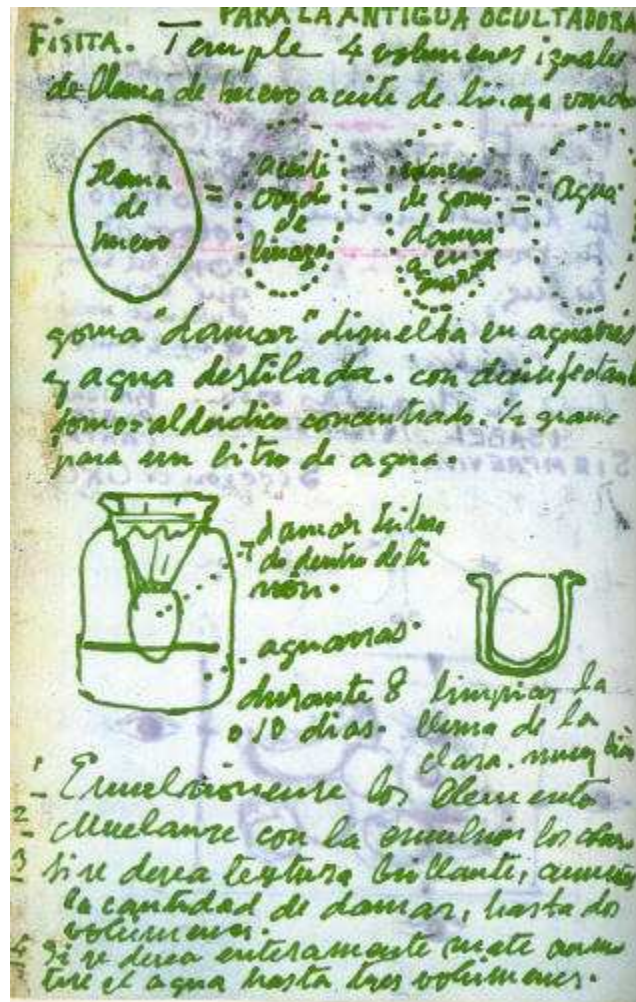 PARA LA ANTIGUA OCULTADORA
FISITA. Temple 4 volumenes iguales
de llema de huevo aceite de linaza
llema
de
huevo
=
aceite
de
linaza
=
de goma
damar
en
aguarras
=
agua
goma "damar" disuelta en aguarras
y agua destilada. con desinfectante
concentrado. ½ gramo
para un litro de agua.
damar
do dentro del
aguarras.
durante 8
o 10 dias.
limpiar la
llema de la
clara. muy bien
1 - Emulsionense los elementos
2 - Muelanse con la emulsion los
3 - Si se desea textura brillante, aumen
la cantidad de damar, hasta dos
volumenes.
4 Si se desea enteramente mate aume
tese el agua hasta tres volumenes.